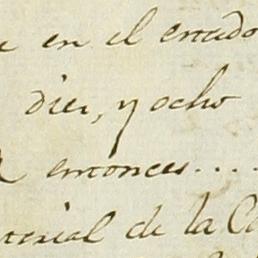 e en el errado
dies, y ocho
entonces....
terial de la Ca